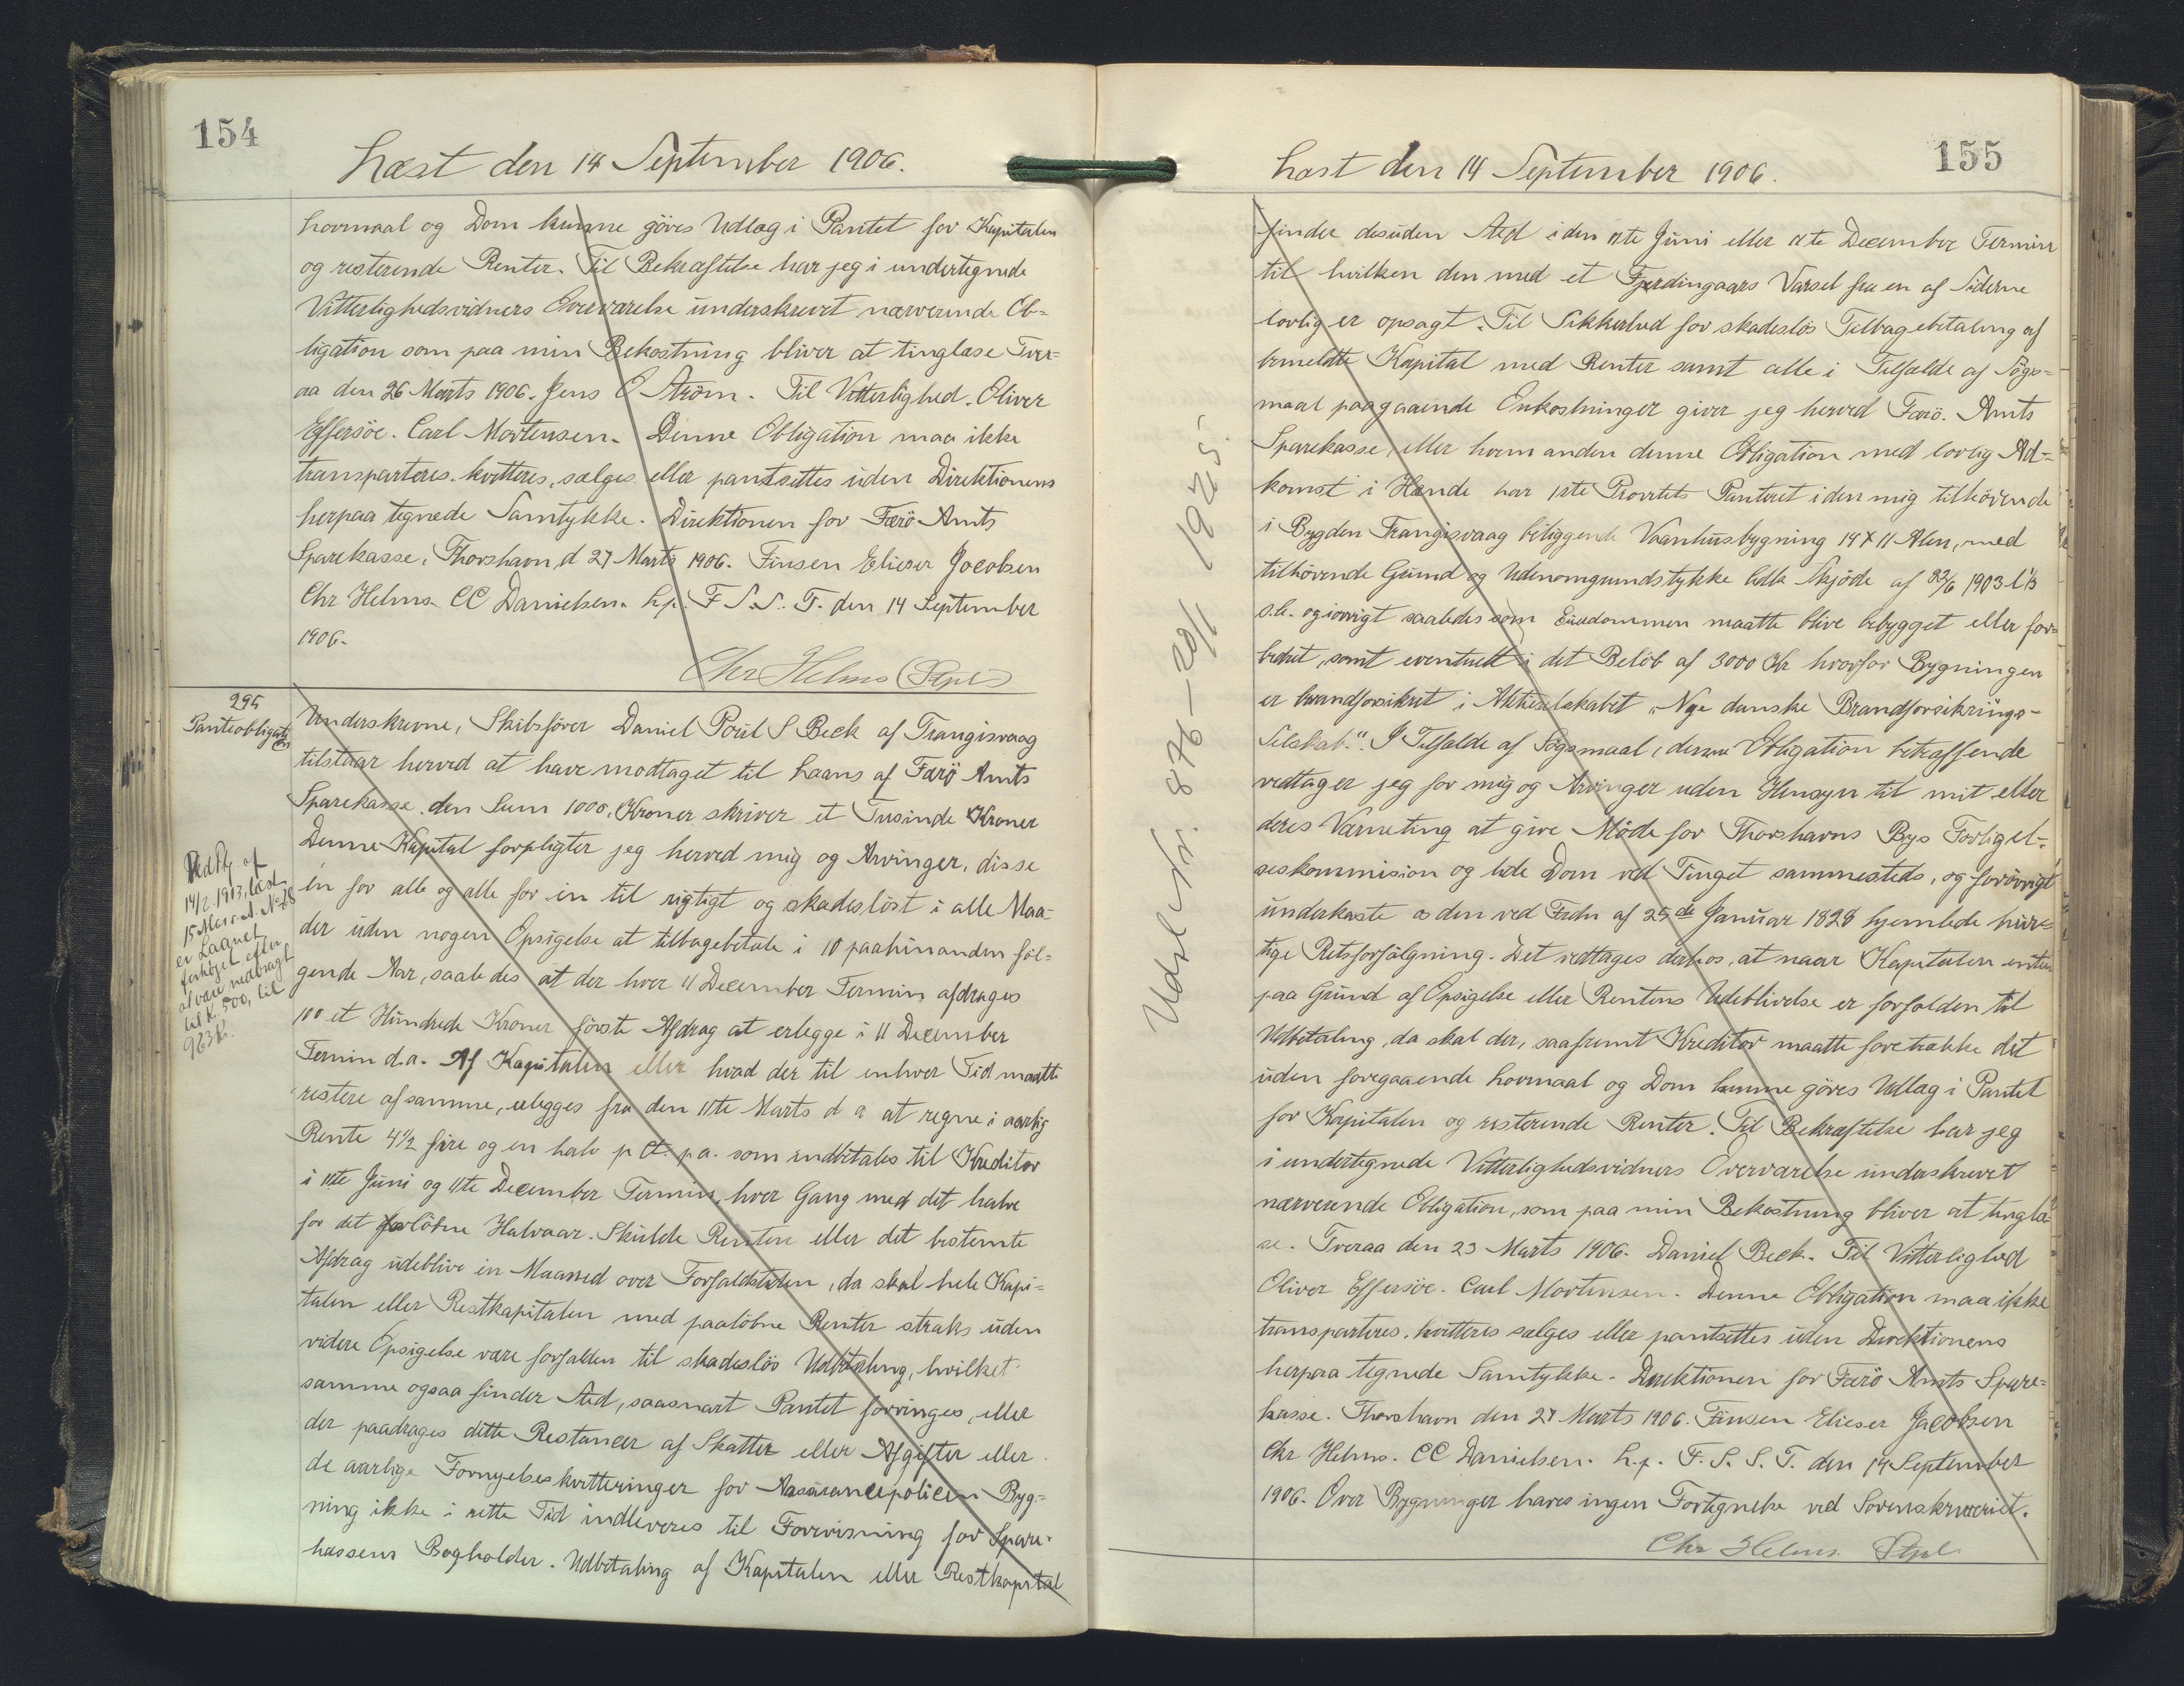 154
Læst den 14 September 1906.
Lovmaal og Dom kunne göres Udlæg i Pantet for Kapitalen
og resterende Renter. Til Bekræftelse har jeg i undertegnede
Vitterlighedsvidners Overværelse underskrevet nærværende Ob=
ligation som paa min Bekostning bliver at tinglæse Tver=
aa den 26 Marts 1906. Jens O Ström. Til Vitterlighed. Oliver
Effersöe. Carl Mortensen. Denne Obligation maa ikke
transporteres. kvitteres, sælges eller pantsættes uden Direktionens
herpaa tegnede Samtykke. Direktionen for Færö Amts
Sparekasse, Thorshavn, d 27 Marts 1906. Finsen Elieser Jacobsen
Chr Helms CC Danielsen. L.p. F. S. S. T. den 14 September
1906.
Chr Helms
295
Panteobligation
Underskrevne, Skibsförer Daniel Poul S Beck af Trangisvaag
tilstaar herved at have modtaget til Laans af Færö Amts
Sparekasse den Sum 1000, Kroner skriver et Tusinde Kroner
Denne Kapital forpligter jeg herved mig og Arvinger, disse
én for alle og alle for én til rigtigt og skadeslöst i alle Maa=
der uden nogen Opsigelse at tilbagebetale i 10 paahinanden föl=
gende Aar, saaledes at der hver 11 December Termin afdrages
100 et Hundrede Kroner förste Afdrag at erlægge i 11 December
Termin d.a. Af Kapitalen eller hvad der til enhver Tid maatte
restere af samme, erlægges fra den 11te Marts d a at regne i aarlig
Rente 4½ fire og en halv p Ct. p a. som indbetales til Kreditor
i 11te Juni og 11te December Termin, hver Gang med det halve
for det forlöbne Halvaar. Skulde Renten eller det bestemte
Afdrag udeblive en Maaned over Forfaldstiden, da skal hele Kapi=
talen eller Restkapitalen med paalöbne Renter straks uden
videre Opsigelse være forfalden til skadeslös Udbetaling, hvilket
samme ogsaa finder Sted, saasnart Pantet forringes, eller
der paadrages dette Restancer af Skatter eller Afgifter eller
de aarlige Fornyelseskvitteringer for Assurancepolicen Byg=
ning ikke i rette Tid indleveres til Forevisning for Spare=
kassens Bogholder. Udbetaling af Kapitalen eller Restkapital
Ved Pg. af
14/2 1913, læst
15 Mars s. A. No 28
er Laanet
forhöjet efter
at være nedbragt
til K. 500, til
963 Kr.
155
Læst den 14 September 1906.
finder desuden Sted i den 11te Juni eller 11te December Termin
til hvilken den med et Fjerdingaars Varsel fra en af Siderne
lovlig er opsagt. Til Sikkerhed for skadeslös Tilbagebetaling af
bemeldte Kapital med Renter samt alle i Tilfælde af Sögs=
maal paagaaende Omkostninger giver jeg herved Færö. Amts
Sparekasse, eller hvem anden denne Obligation med lovlig Ad=
komst i Hænde har 1ste Prioritets Panteret i den mig tilhörende
i Bygden Trangisvaag beliggende Vaanhusbygning 14 X 11 Alen, med
tilhörende Grund og Udenomgrundstykke hdlt Skjöde af 22/6 1903 l 1/3
s.a. og iövrigt saaledes som Eiendommen maatte blive bebygget eller for=
bedret, samt eventuelt i det Belöb af 3000 Kr hvorfor Bygningen
er brandforsikret i Aktieselskabet "Nye danske Brandforsikrings-
Selskab". I Tilfælde af Sögsmaal, denne Obligation betræffende
vedtager jeg for mig og Arvinger uden Hensyn til mit eller
deres Værneting at give Möde for Thorshavns Bys Forligel=
seskommision og lide Dom ved Tinget sammesteds, og forövrigt
underkaste os den ved Frdn af 25de Januar 1828 hjemlede hur=
tige Retsforfölgning. Det vedtages derhos, at naar Kapitalen enten
paa Grund af Opsigelse eller Rentens Udeblivelse er forfalden til
Udbetaling, da skal der, saafremt Kreditor maatte foretrække det
uden foregaaende Lovmaal og Dom kunne göres Udlæg i Pantet
for Kapitalen og resterende Renter. Til Bekræftelse har jeg
i undertegnede Vitterlighedsvidners Overværelse underskrevet
nærværende Obligation, som paa min Bekostning bliver at tinglæ=
se. Tveraa den 23 Marts 1906. Daniel Beck. Til Vitterlighed
Oliver Effersöe. Carl Mortensen. Denne Obligation maa ikke
transporteres, kvitteres sælges eller pantsættes uden Direktionens
herpaa tegnede Samtykke. Direktionen for Færö Amts Spare=
kasse. Thorshavn den 27 Marts 1906. Finsen Elieser Jacobsen
Chr Helms. CC Danielsen. L.p. F. S. S. T. den 14 September
1906. Over Bygninger haves ingen Fortegnelse ved Sorenskriveriet.
Chr Helms.
Udsl. e. Nr. 876 - 20/1 1925.